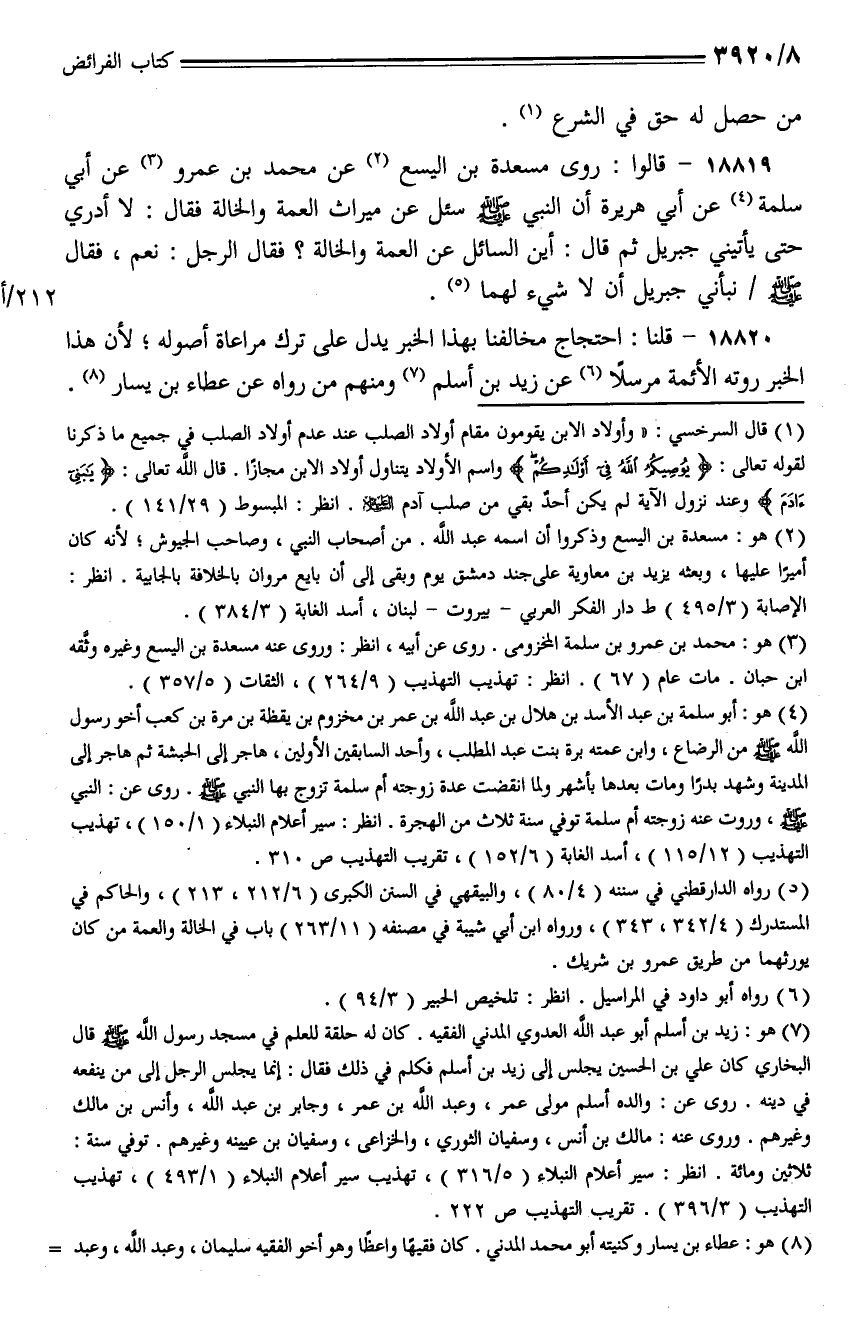 ٣٩٢٠/٨ كتاب الفرائض
من حصل له حق في الشرع (١) .
١٨٨١٩ - قالوا : روى مسعدة بن اليسع (٢) عن محمد بن عمرو (٣) عن أبي
سلمة (٤) عن أبي هريرة أن النبي ﷺ سئل عن ميراث العمة والخالة فقال : لا أدري
حتى يأتيني جبريل ثم قال : أين السائل عن العمة والخالة ؟ فقال الرجل : نعم ، فقال
ﷺ / نبأني جبريل أن لا شيء لهما (٥) . ٢١٢/أ
١٨٨٢٠ - قلنا : احتجاج مخالفنا بهذا الخبر يدل على ترك مراعاة أصوله ؛ لأن هذا
الخبر روته الأئمة مرسلًا (٦) عن زيد بن أسلم (٧) ومنهم من رواه عن عطاء بن يسار (٨) .
(١) قال السرخسي : « وأولاد الابن يقومون مقام أولاد الصلب عند عدم أولاد الصلب في جميع ما ذكرنا
لقوله تعالى : ﴿ يُوصِيكُمُ ٱللَّهُ فِىٓ أَوْلَٰدِكُمْ ﴾ واسم الأولاد يتناول أولاد الابن مجازًا . قال اللَّه تعالى : ﴿ يَٰبَنِىٓ
ءَادَمَ ﴾ وعند نزول الآية لم يكن أحدٌ بقي من صلب آدم الطَّيِّلاَ . انظر : المبسوط ( ١٤١/٢٩ ) .
(٢) هو : مسعدة بن اليسع وذكروا أن اسمه عبد اللَّه . من أصحاب النبي ، وصاحب الجيوش ؛ لأنه كان
أميرًا عليها ، وبعثه يزيد بن معاوية على جند دمشق يوم وبقى إلى أن بايع مروان بالخلافة بالجابية . انظر :
الإصابة ( ٤٩٥/٣ ) ط دار الفكر العربي - بيروت - لبنان ، أسد الغابة ( ٣٨٤/٣ ) .
(٣) هو : محمد بن عمرو بن سلمة المخزومى . روى عن أبيه ، انظر : وروى عنه مسعدة بن اليسع وغيره وثَّقه
ابن حبان . مات عام ( ٦٧ ) . انظر : تهذيب التهذيب ( ٢٦٤/٩ ) ، الثقات ( ٣٥٧/٥ ) .
(٤) هو : أبو سلمة بن عبد الأسد بن هلال بن عبد اللَّه بن عمر بن مخزوم بن يقظة بن مرة بن كعب أخو رسول
اللَّه ﷺ من الرضاع ، وابن عمته برة بنت عبد المطلب ، وأحد السابقين الأولين ، هاجر إلى الحبشة ثم هاجر إلى
المدينة وشهد بدرًا ومات بعدها بأشهر ولما انقضت عدة زوجته أم سلمة تزوج بها النبي ﷺ . روى عن : النبي
ﷺ ، وروت عنه زوجته أم سلمة توفي سنة ثلاث من الهجرة . انظر : سير أعلام النبلاء ( ١٥٠/١ ) ، تهذيب
التهذيب ( ١١٥/١٢ ) ، أسد الغابة ( ١٥٢/٦ ) ، تقريب التهذيب ص ٣١٠ .
(٥) رواه الدارقطني في سننه ( ٨٠/٤ ) ، والبيقهي في السنن الكبرى ( ٢١٢/٦ ، ٢١٣ ) ، والحاكم في
المستدرك ( ٣٤٢/٤ ، ٣٤٣ ) ، ورواه ابن أبي شيبة في مصنفه ( ٢٦٣/١١ ) باب في الخالة والعمة من كان
يورثهما من طريق عمرو بن شريك .
(٦) رواه أبو داود في المراسيل . انظر : تلخيص الحبير ( ٩٤/٣ ) .
(٧) هو : زيد بن أسلم أبو عبد اللَّه العدوي المدني الفقيه . كان له حلقة للعلم في مسجد رسول اللَّه ﷺ قال
البخاري كان علي بن الحسين يجلس إلى زيد بن أسلم فكلم في ذلك فقال : إنما يجلس الرجل إلى من ينفعه
في دينه . روى عن : والده أسلم مولى عمر ، وعبد اللَّه بن عمر ، وجابر بن عبد اللَّه ، وأنس بن مالك
وغيرهم . وروى عنه : مالك بن أنس ، وسفيان الثوري ، والخزاعى ، وسفيان بن عيينه وغيرهم . توفي سنة :
ثلاثين ومائة . انظر : سير أعلام النبلاء ( ٣١٦/٥ ) ، تهذيب سير أعلام النبلاء ( ٤٩٣/١ ) ، تهذيب
التهذيب ( ٣٩٦/٣ ) . تقريب التهذيب ص ٢٢٢ .
(٨) هو : عطاء بن يسار وكنيته أبو محمد المدني . كان فقيهًا واعظًا وهو أخو الفقيه سليمان ، وعبد اللَّه ، وعبد =